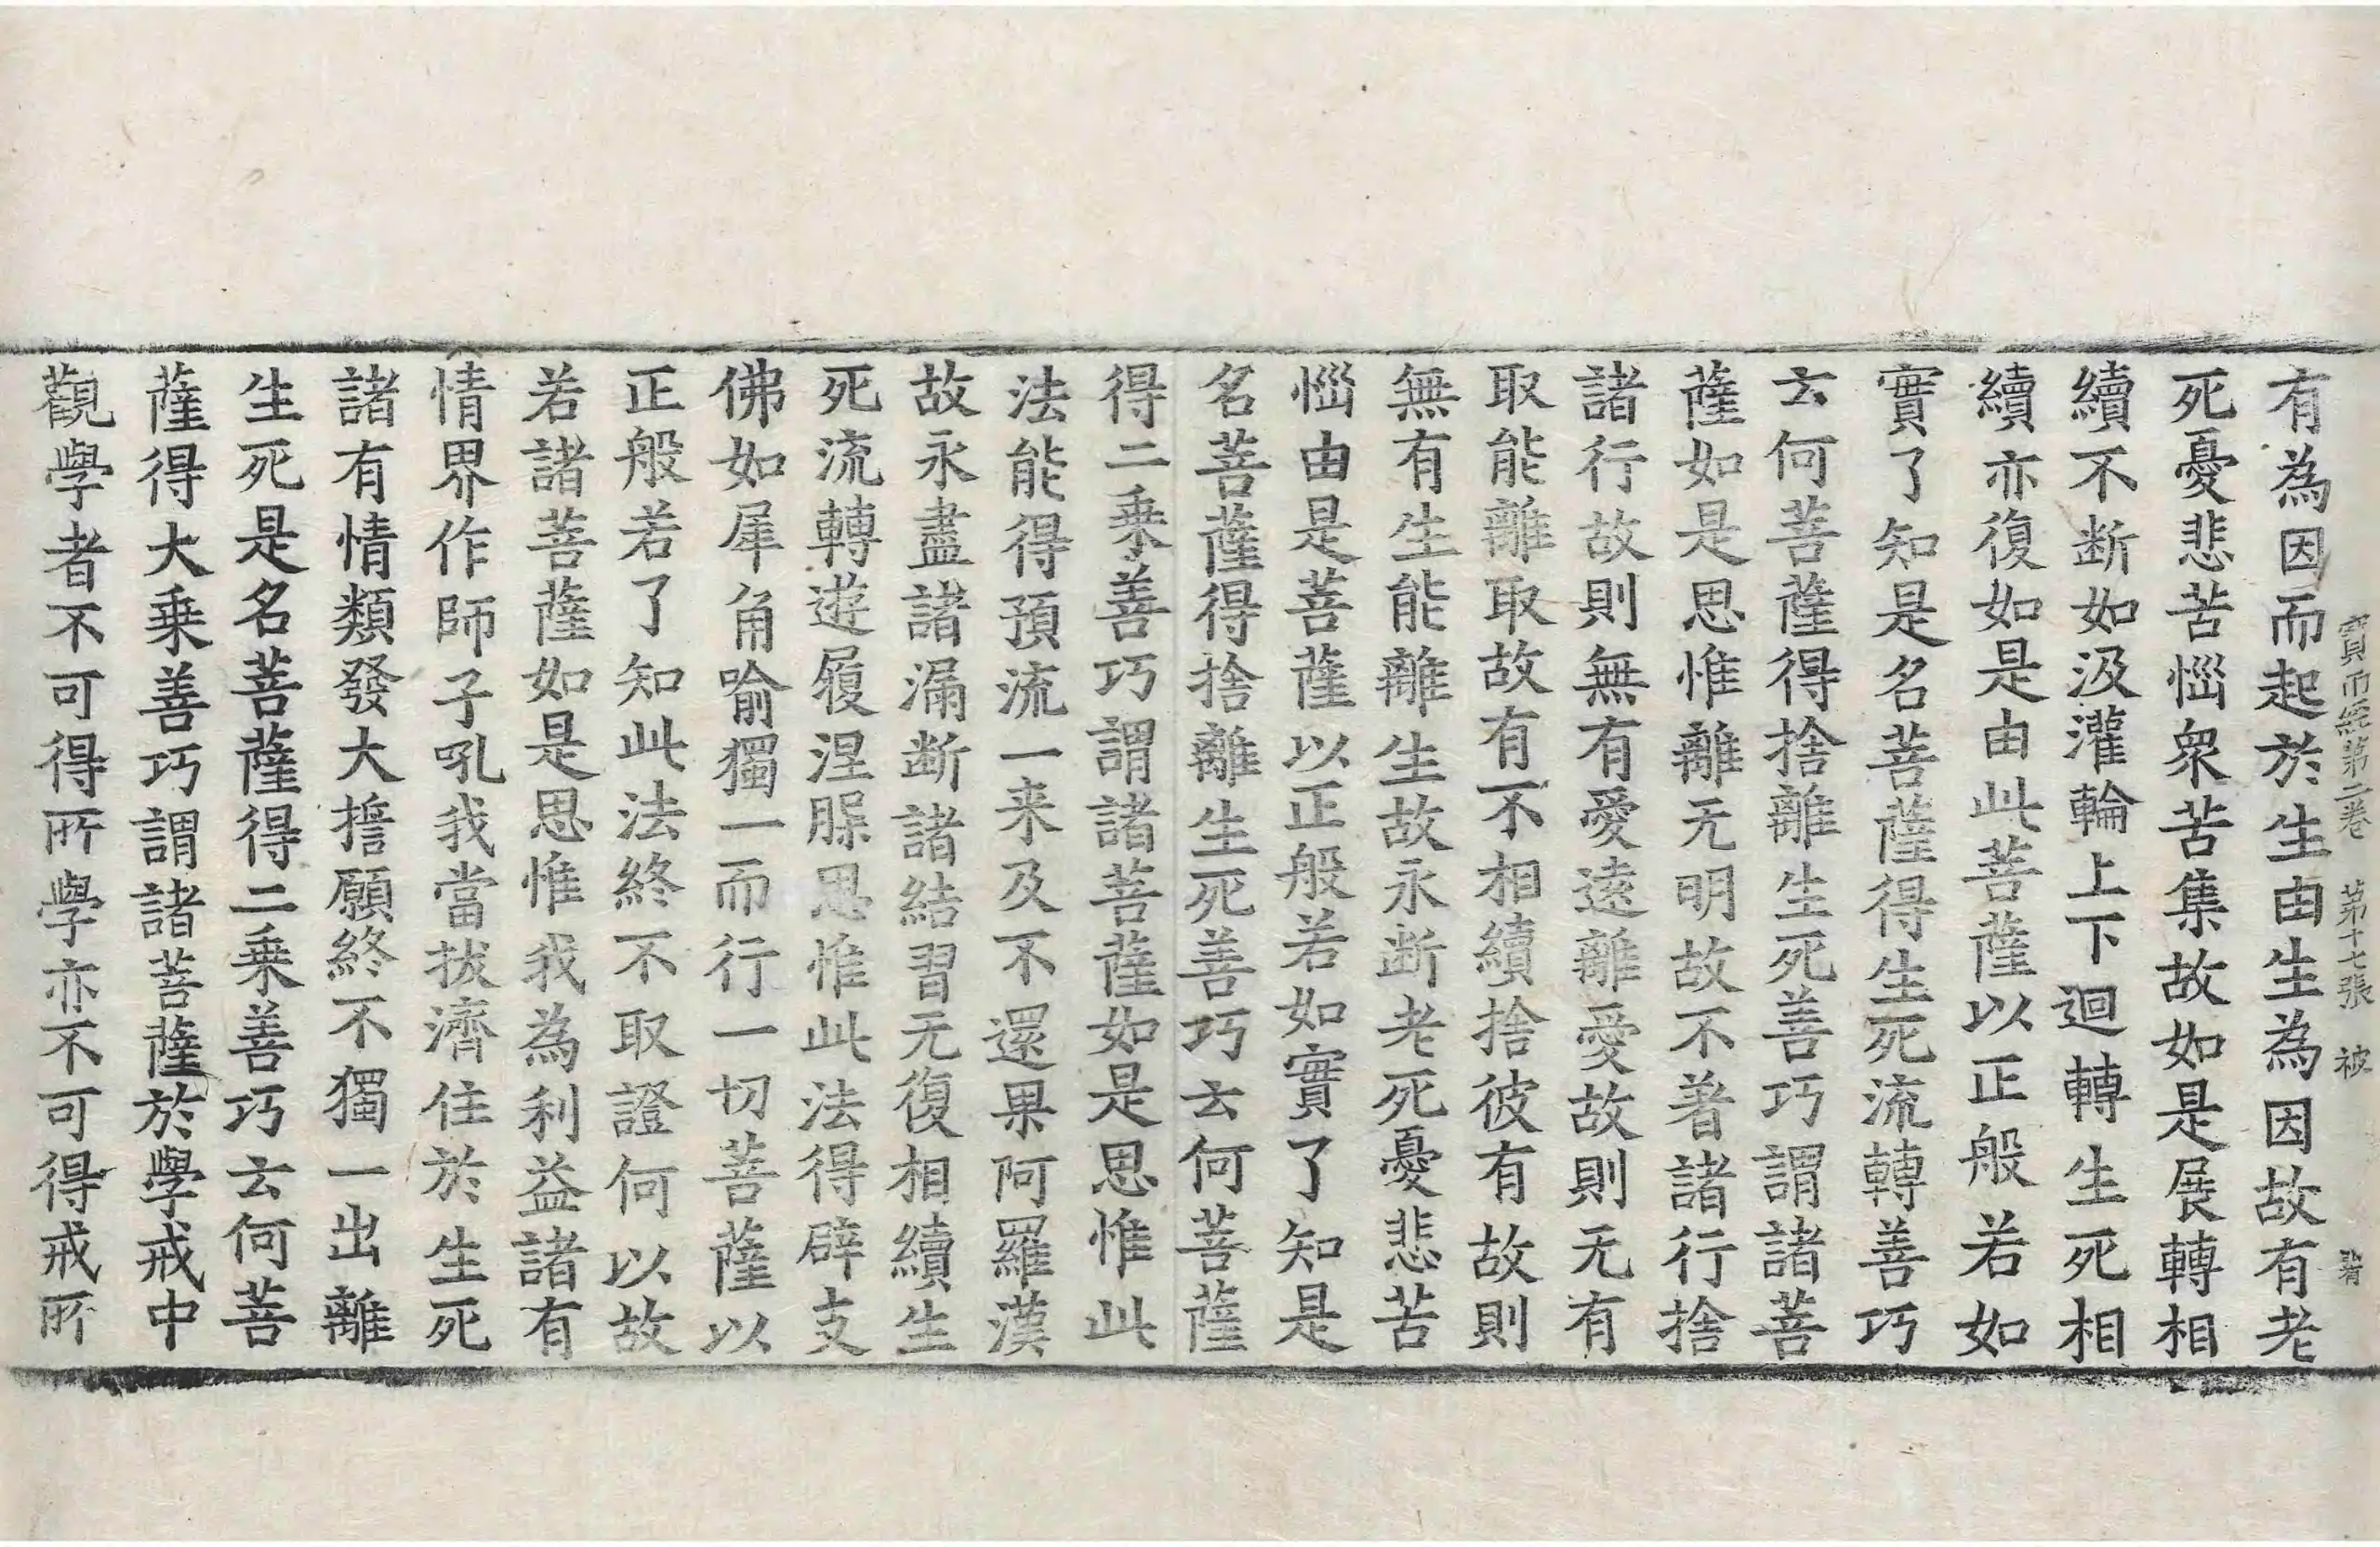 寶雨經第二卷　第十七張　被
有為因而起於生由生為因故有老
死憂悲苦惱衆苦集故如是展轉相
續不断如汲灌輪上下迴轉生死相
續亦復如是由此菩薩以正般若如
實了知是名菩薩得生死流轉善巧
云何菩薩得捨離生死善巧謂諸菩
薩如是思惟離无明故不著諸行捨
諸行故則無有愛遠離愛故則无有
取能離取故有不相續捨彼有故則
無有生能離生故永断老死憂悲苦
惱由是菩薩以正般若如實了知是
名菩薩得捨離生死善巧云何菩薩
得二乗善巧謂諸菩薩如是思惟此
法能得預流一来及不還果阿羅漢
故永盡諸漏断諸結習无復相續生
死流轉遊履涅槃思惟此法得辟支
佛如犀角喻獨一而行一切菩薩以
正般若了知此法終不取證何以故
若諸菩薩如是思惟我為利益諸有
情界作師子吼我當拔濟住於生死
諸有情類發大誓願終不獨一出離
生死是名菩薩得二乗善巧云何菩
薩得大乗善巧謂諸菩薩於學戒中
觀學者不可得所學亦不可得戒所